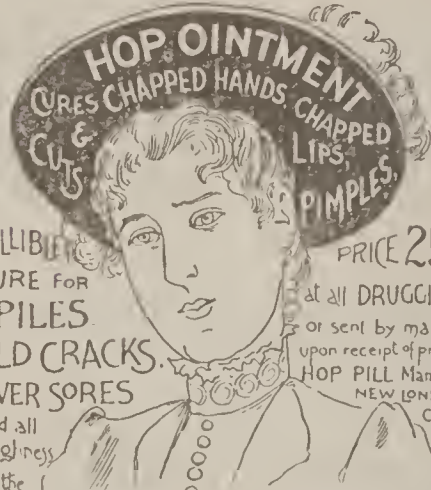 HOP OINTMENT
CURES CHAPPED HANDS, CHAPPED
& CUTS LIPS,
PIMPLES,
LLIBLE
URE FOR
PILES
LD CRACKS.
VER SORES
d all
ghness
the
PRICE 25
at all DRUGGI
or sent by ma
upon receipt of pr
HOP PILL Man
NEW LON
C